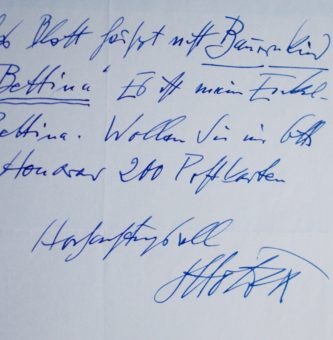 Blatt heißt nett Bauernkind
Bettina" Es ist mein Enkel
Bettina. Wollen Sie
Honorar 200 Postkarten
Hochachtungsvoll